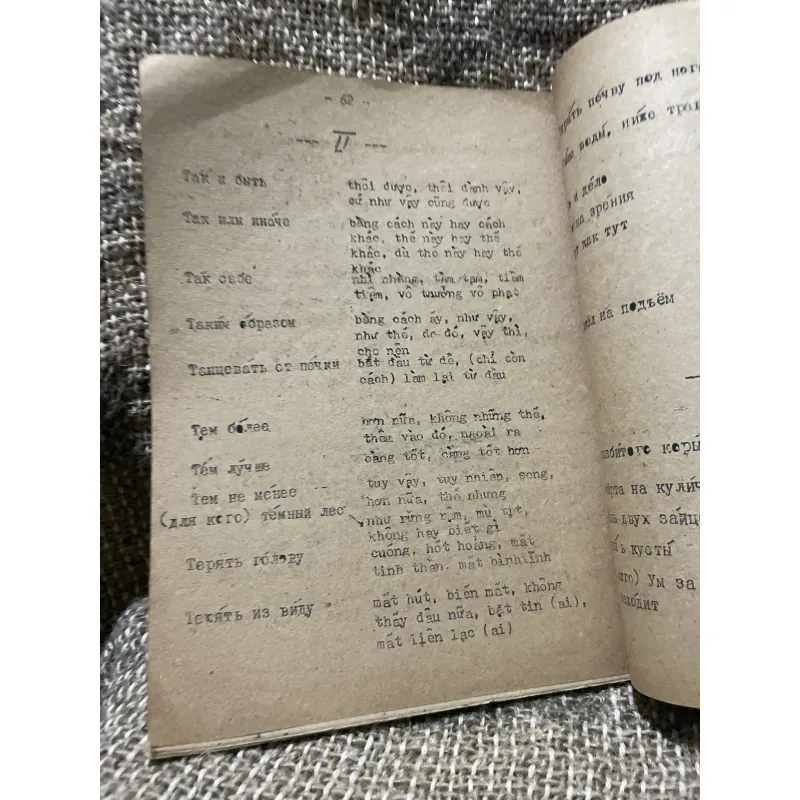 - 62 -
--- П ---
Так и быть
thôi được, thôi đành vậy,
cứ như vậy cũng được
Так или ина́че
bằng cách này hay cách
khác, thế này hay thế
khác, dù thế này hay thế
khác
Так себе
nhì nhằng, tàm tạm, tiềm
tiệm, vô thưởng vô phạt
Таким о́бразом
bằng cách ấy, như vậy,
như thế, do đó, vậy thì,
cho nên
Танцева́ть от пе́чки
bắt đầu từ dễ, (chỉ còn
cách) làm lại từ đầu
Тем бо́лее
hơn nữa, không những thế,
thêm vào đó, ngoài ra
Тем лу́чше
càng tốt, càng tốt hơn
Тем не ме́нее
tuy vậy, tuy nhiên, song,
hơn nữa, thế nhưng
(для кого) тёмный лес
như rừng rậm, mù tịt,
không hay biết gì
Теря́ть го́лову
cuống, hốt hoảng, mất
tinh thần, mất bình tĩnh
Теря́ть из ви́ду
mất hút, biến mất, không
thấy đâu nữa, bặt tin (ai),
mất liên lạc (ai)
по́чву под ног
воды́, ни́же тра
и де́ло
зре́ния
как тут
на подъём
коры́
на кули́ч
двух за́йце
кусты́
Ум за